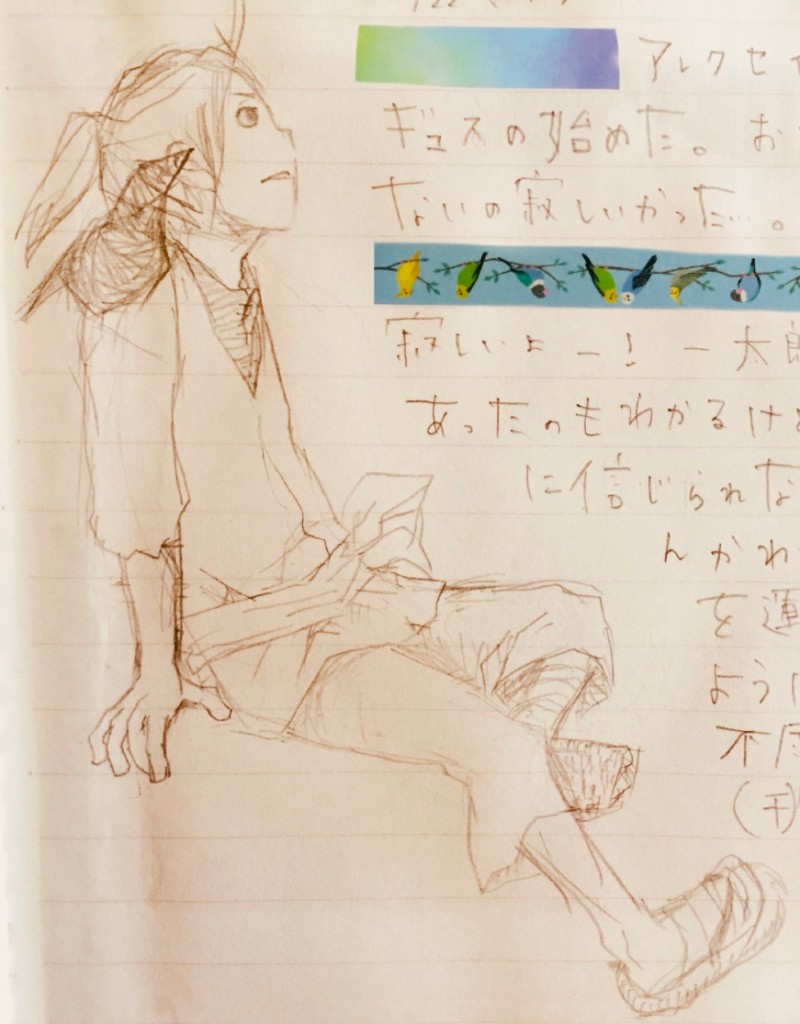 アレクセイ
ギュスの始めた。お
ないの寂しいかった…。
寂しいよー！一太郎
あったのもわかるけど
に信じられな
んかわ
を運
ように
不
(千)